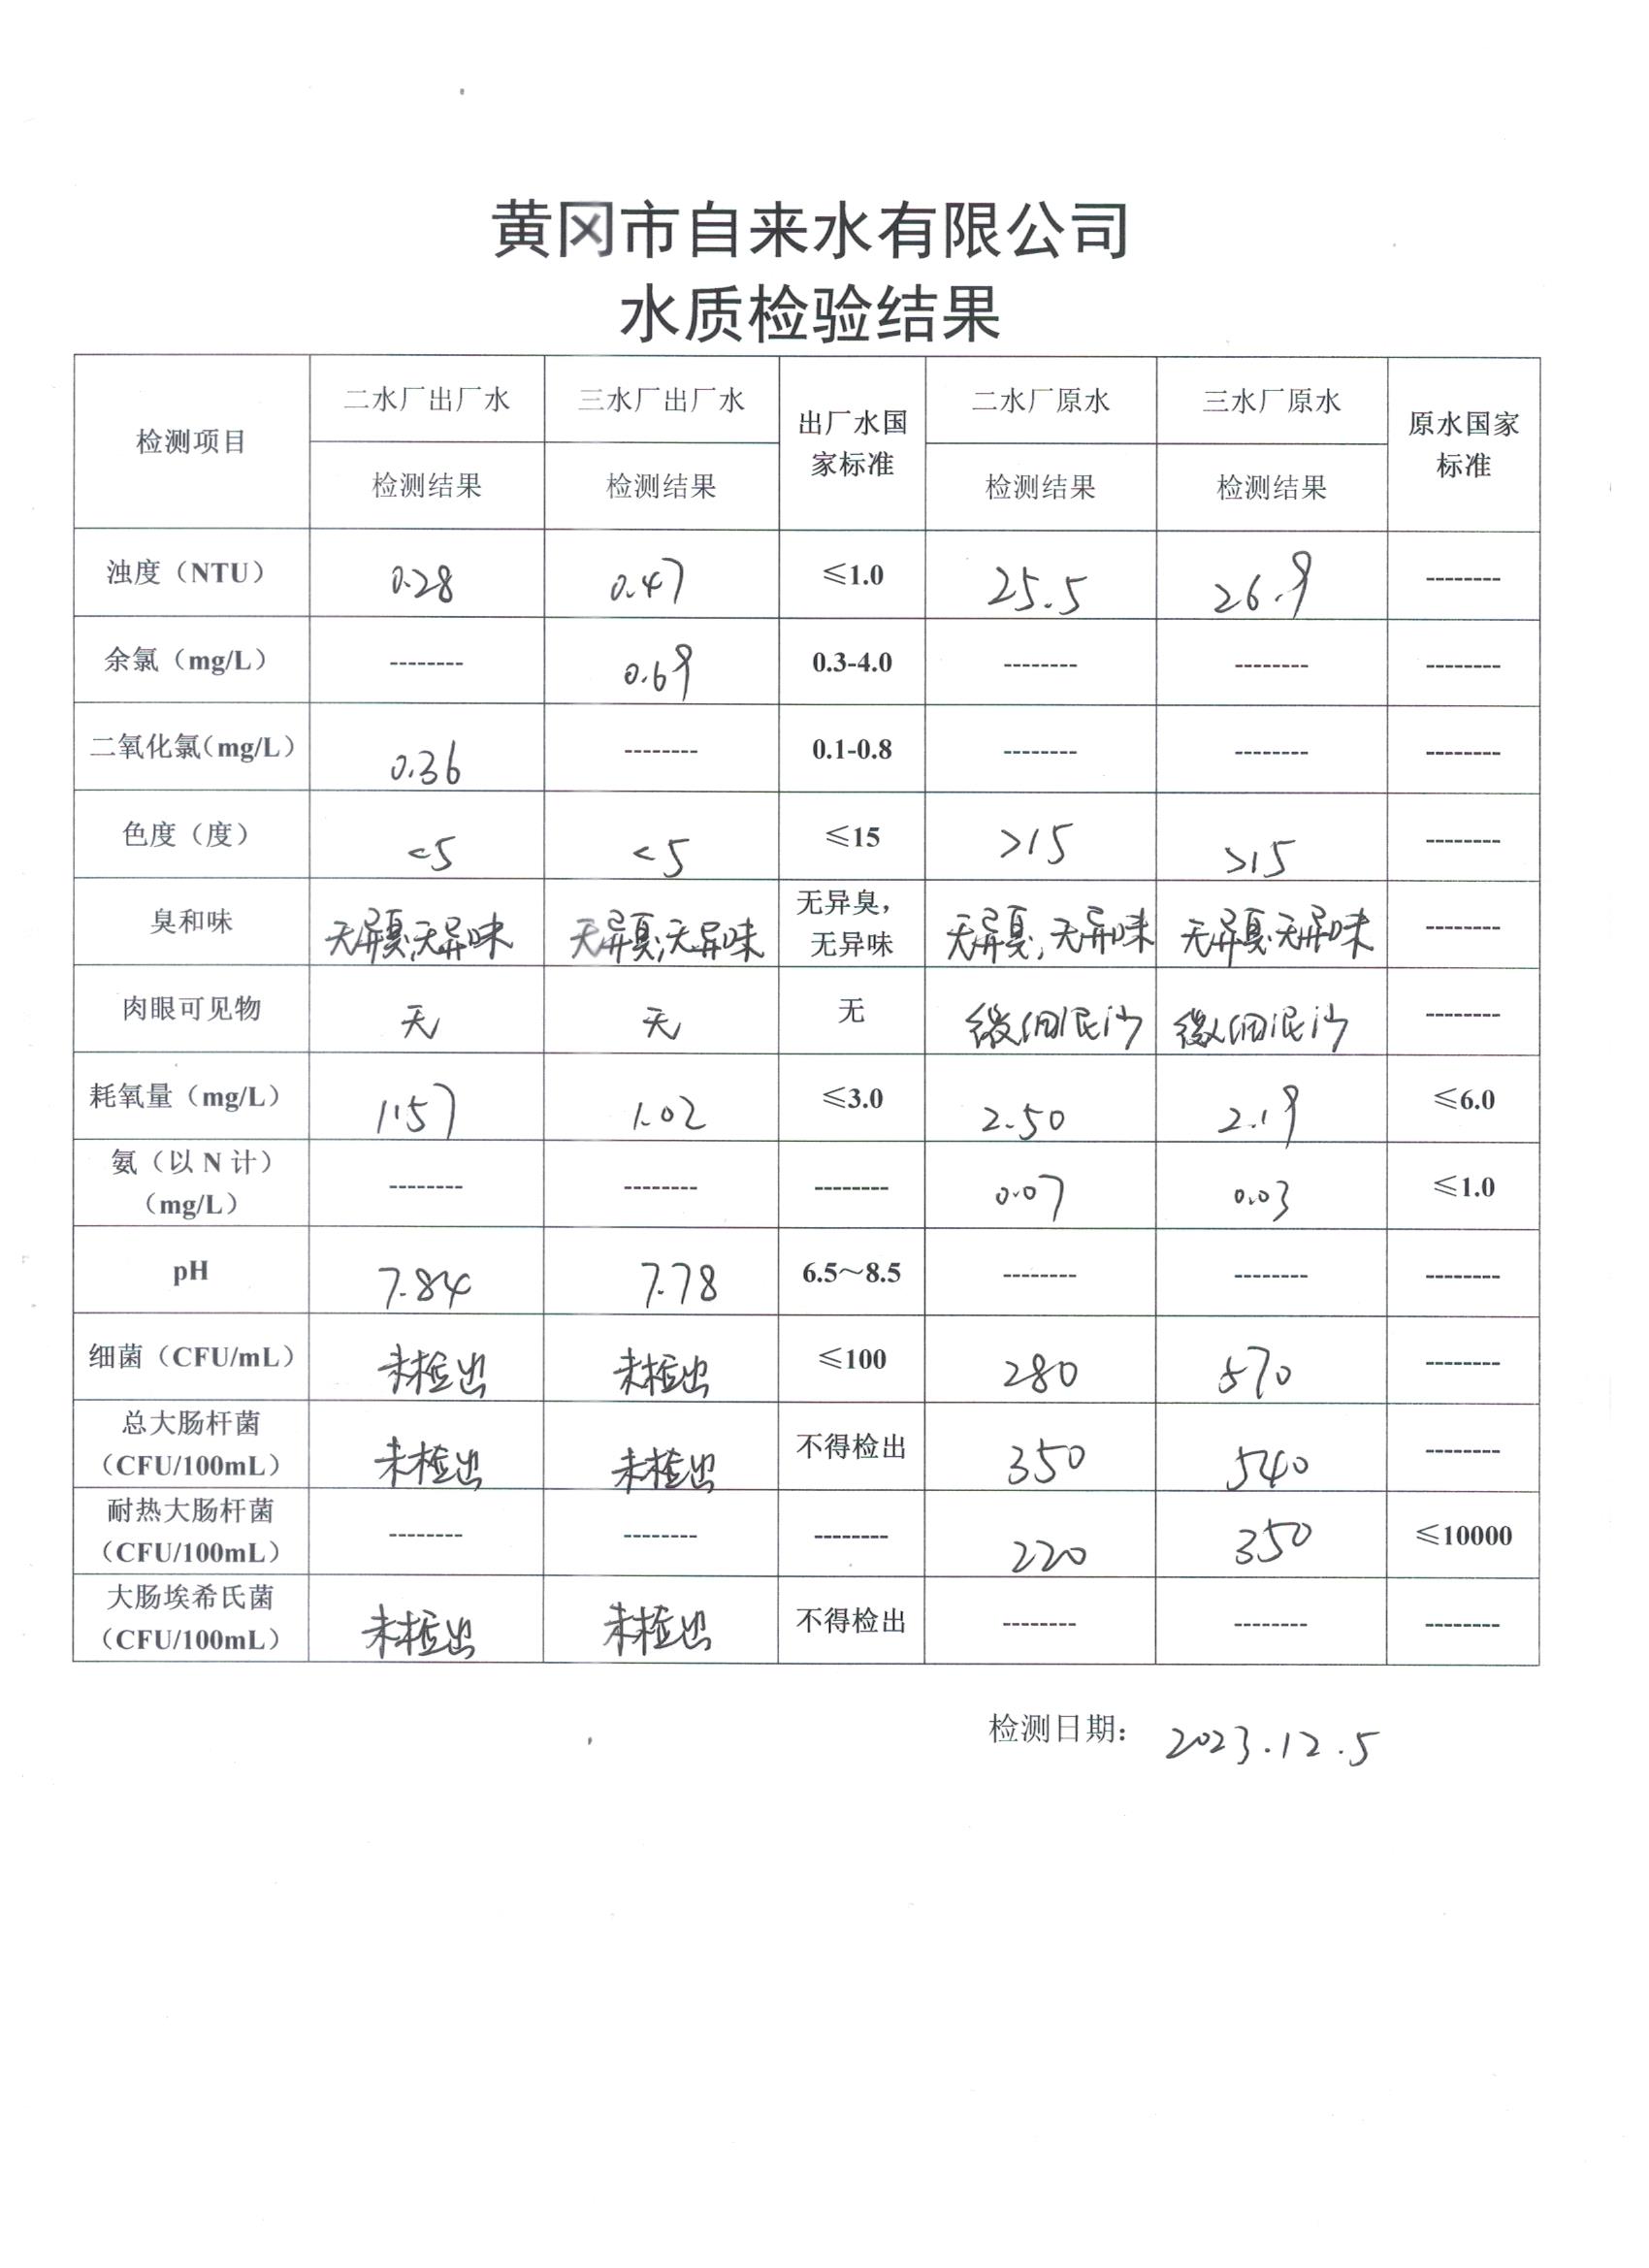 黄冈市自来水有限公司
水质检验结果
检测项目 二水厂出厂水 三水厂出厂水 出厂水国家标准 二水厂原水 三水厂原水 原水国家标准
检测结果 检测结果 检测结果 检测结果
浊度（NTU） 0.28 0.47 ≤1.0 25.5 26.9 --------
余氯（mg/L） -------- 0.69 0.3-4.0 -------- -------- --------
二氧化氯（mg/L） 0.36 -------- 0.1-0.8 -------- -------- --------
色度（度） <5 <5 ≤15 >15 >15 --------
臭和味 无异臭,无异味 无异臭,无异味 无异臭，无异味 无异臭,无异味 无异臭.无异味 --------
肉眼可见物 无 无 无 微细泥沙 微细泥沙 --------
耗氧量（mg/L） 1.57 1.02 ≤3.0 2.50 2.19 ≤6.0
氨（以 N 计）（mg/L） -------- -------- -------- 0.07 0.03 ≤1.0
pH 7.84 7.78 6.5～8.5 -------- -------- --------
细菌（CFU/mL） 未检出 未检出 ≤100 280 570 --------
总大肠杆菌（CFU/100mL） 未检出 未检出 不得检出 350 540 --------
耐热大肠杆菌（CFU/100mL） -------- -------- -------- 220 350 ≤10000
大肠埃希氏菌（CFU/100mL） 未检出 未检出 不得检出 -------- -------- --------
检测日期： 2023.12.5